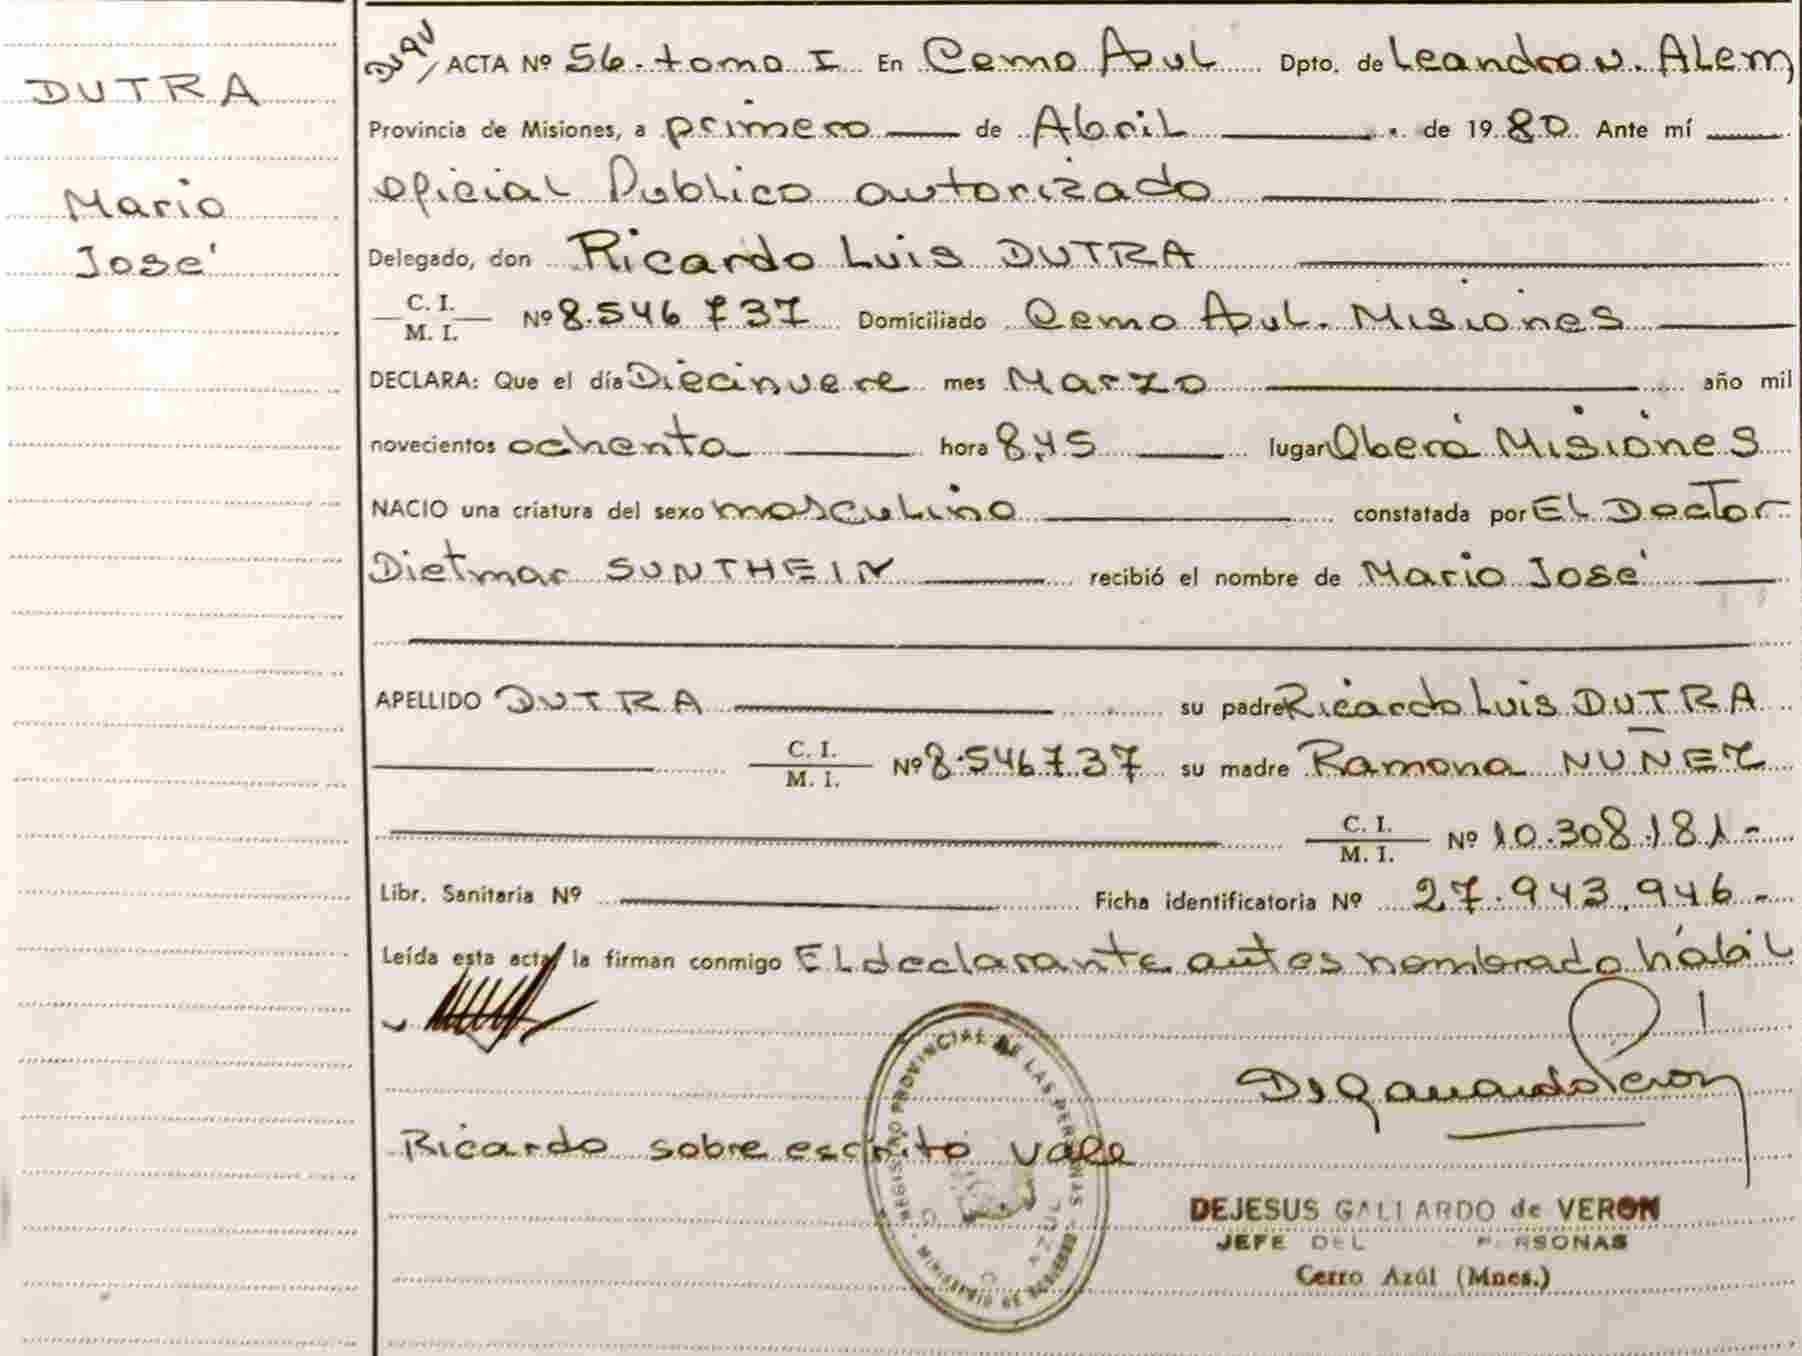 DUTRA
Mario
José
ACTA Nº 56. tomo I En Cerro Azul Dpto. de Leandro N. ALem
Provincia de Misiones, a primero de Abril de 1980 Ante mí
Oficial Publico autorizado
Delegado, don Ricardo Luis DUTRA
C. I.
M. I. Nº 8.546737 Domiciliado Cerro Azul. Misiones
DECLARA: Que el día Diecinueve mes Marzo año mil
novecientos ochenta hora 8,45 lugar Oberá Misiones
NACIO una criatura del sexo masculino constatada por EL Doctor
Dietmar SUNTHEIN recibió el nombre de Mario José
APELLIDO DUTRA su padre Ricardo Luis DUTRA
C. I.
M. I. Nº 8.546737 su madre Ramona NUÑEZ
C. I.
M. I. Nº 10.308.181-
Libr. Sanitaria Nº Ficha identificatoria Nº 27.943.946-
Leída esta acta la firman conmigo EL declarante antes nombrado hábil
REGISTRO PROVINCIAL DE LAS PERSONAS
MINISTERIO DE GOBIERNO
Ricardo sobre escrito vale
DEJESUS GALLARDO de VERON
JEFE DEL PERSONAS
Cerro Azúl (Mnes.)